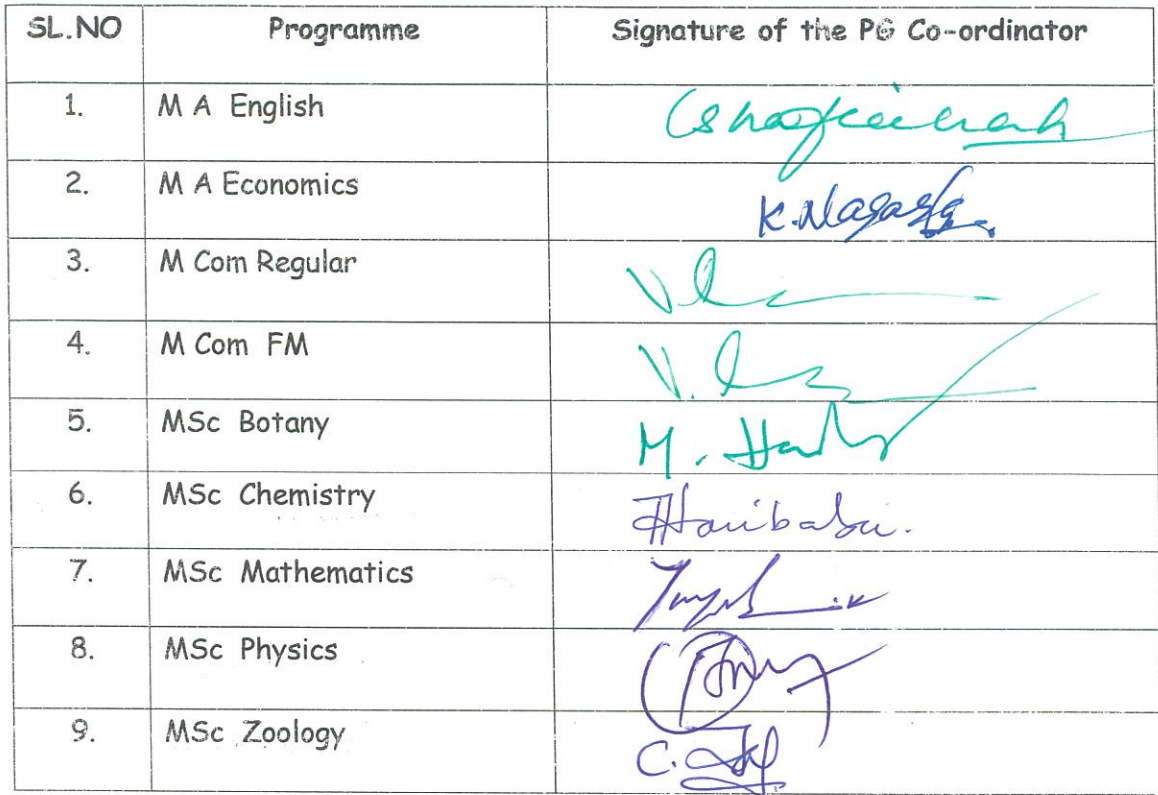 SL.NO Programme Signature of the PG Co-ordinator
1. M A English
2. M A Economics K.Nagaraja
3. M Com Regular
4. M Com FM
5. MSc Botany
6. MSc Chemistry Haribabu.
7. MSc Mathematics
8. MSc Physics
9. MSc Zoology